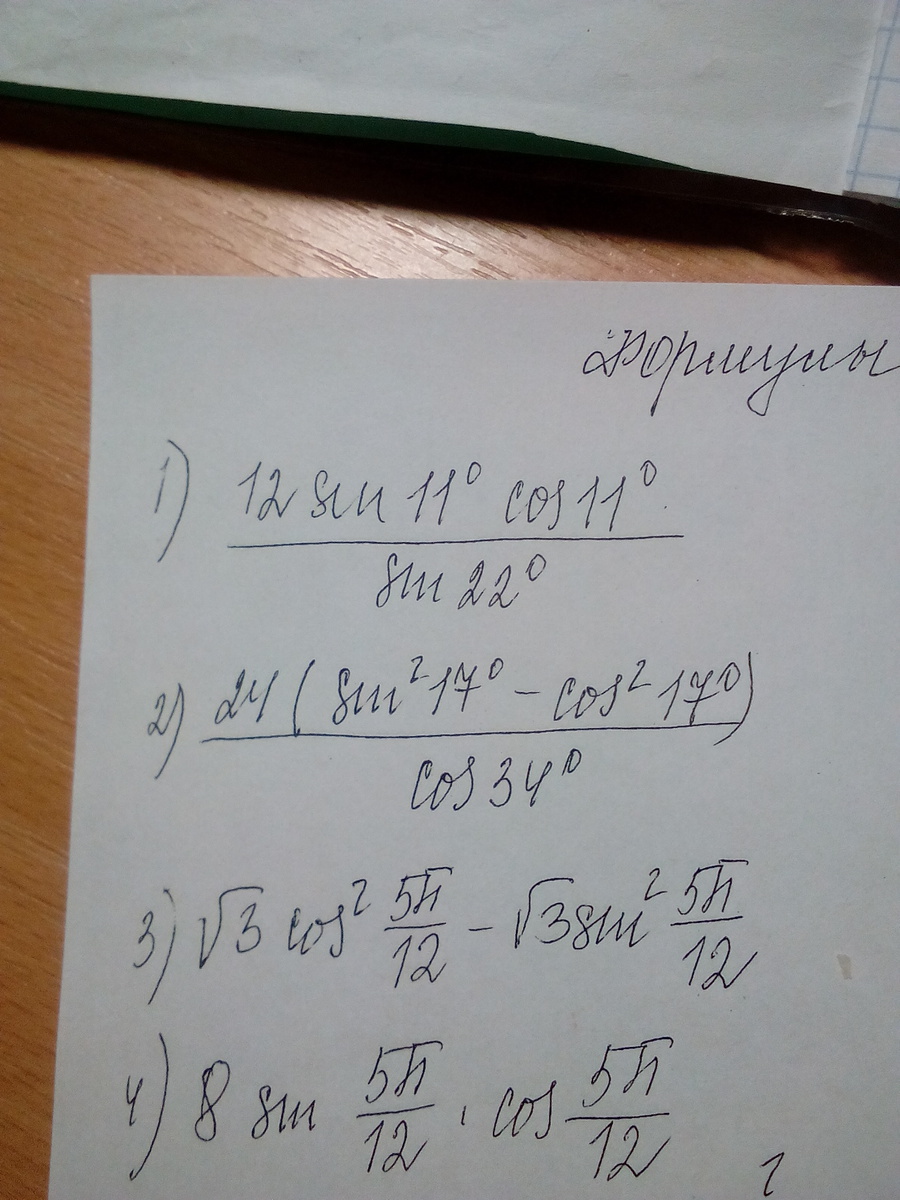 Формулы
1) 12 sin 11° cos 11° / sin 22°
2) 24 ( sin² 17° – cos² 17° ) / cos 34°
3) √3 cos² 5π/12 – √3 sin² 5π/12
4) 8 sin 5π/12 · cos 5π/12